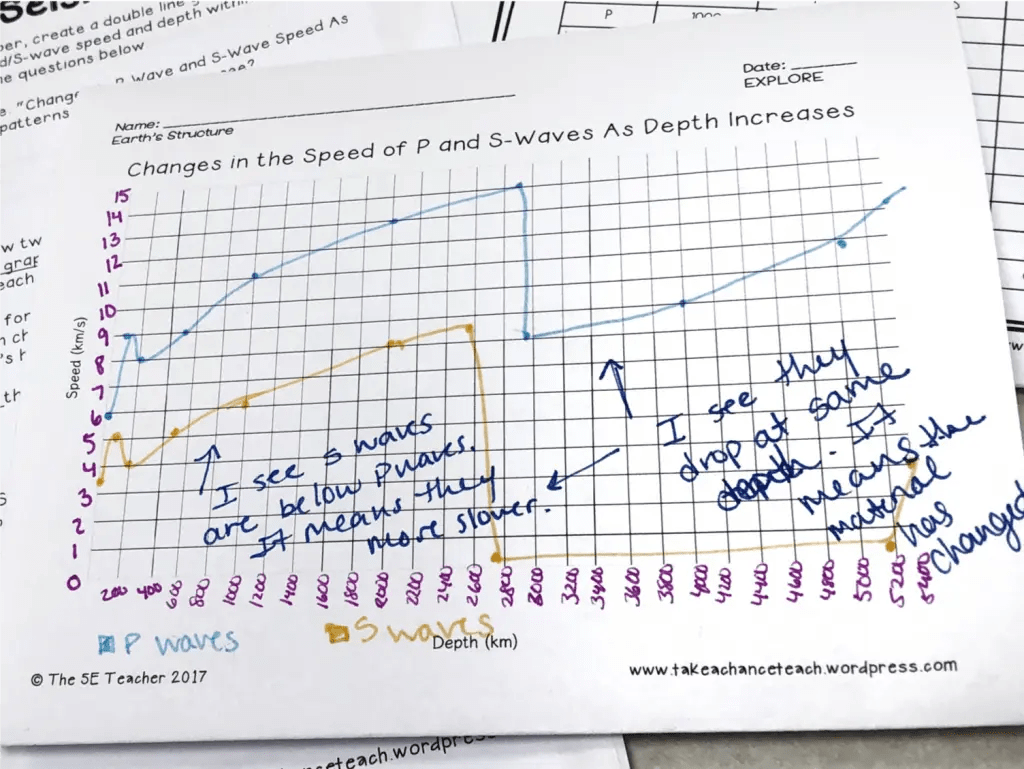 Seis
per, create a double line
d/S-wave speed and depth with
e questions below
n Wave and S-Wave Speed As
e. "Chang
patterns
w tw
graf
each
for
n ch
's r
th
P 1000
Date:
EXPLORE
Name:
Earth's Structure
Changes in the Speed of P and S-Waves As Depth Increases
15
14
13
12
11
10
9
8
7
6
5
4
3
2
1
0
Speed (km/s)
I see s waves
are below P waves.
It means they
more slower.
I see they
drop at same
depth. It
means the
material
has
changed
200 400 600 800 1000 1200 1400 1600 1800 2000 2200 2400 2600 2800 3000 3200 3400 3600 3800 4000 4200 4400 4600 4800 5000 5200 5400
P waves
S waves
Depth (km)
© The 5E Teacher 2017
www.takeachanceteach.wordpress.com
anceteach.wordpress